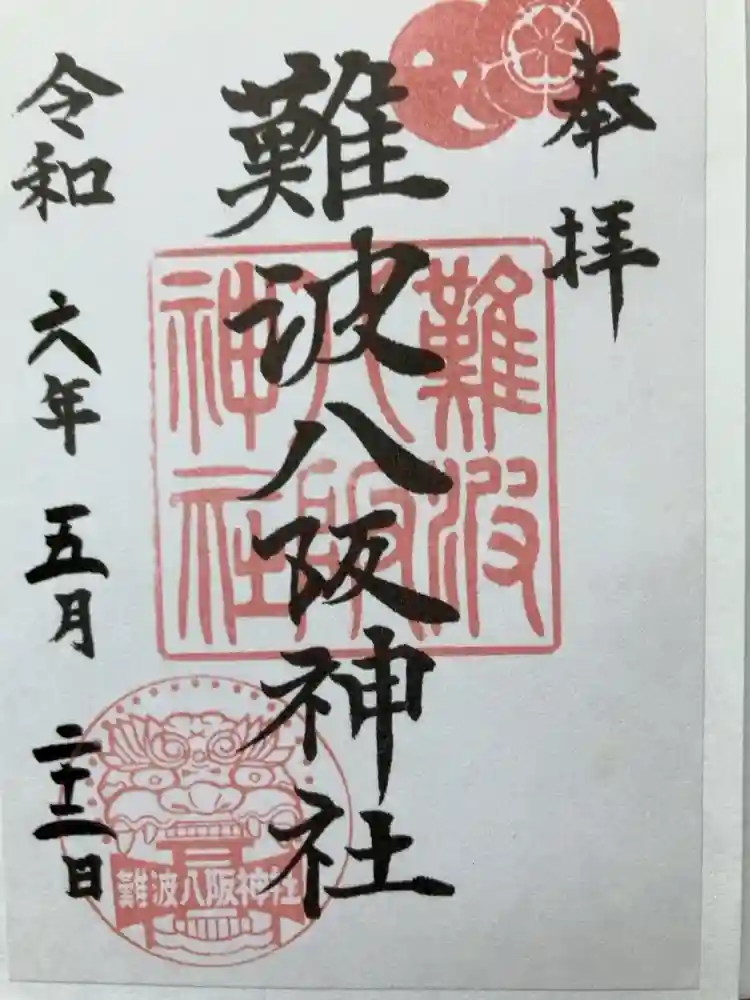 奉拝
難波八阪神社
令和六年五月二十二日
難波八阪神社
難波八阪神社